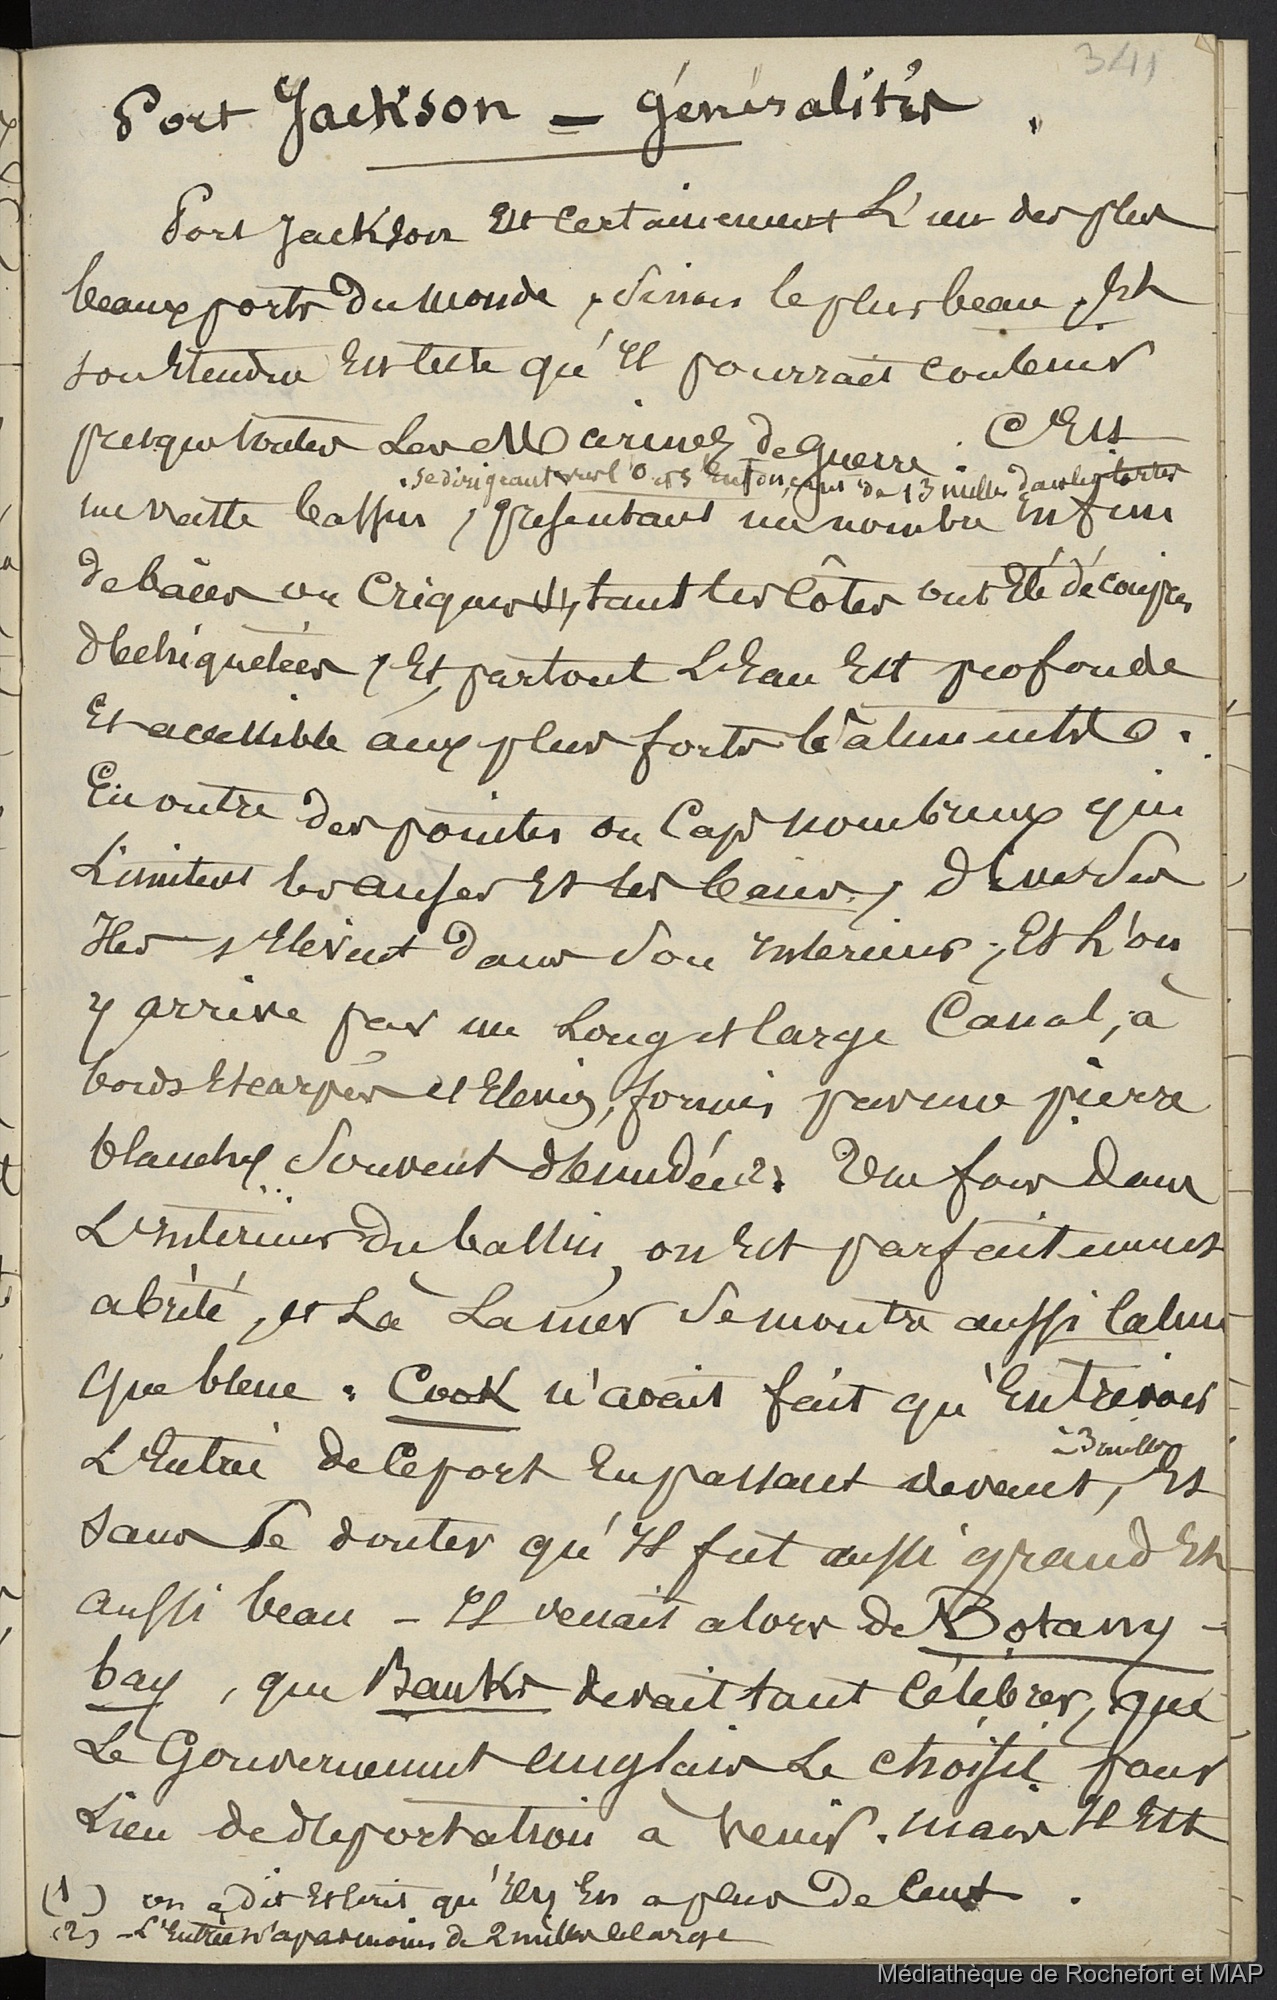 341
Port Jackson — généralités.
Port Jackson Est certainement L'un des plus
beaux ports Du Monde, sinon le plus beau. Et
son Etendue Est telle qu'Il pourrait contenir
presque toutes Les Marines de guerre. C'Est
se dirigeant vers l'O et s'Enfonçant de 13 milles dans les terres
un vaste bassin, présentant un nombre Infini
de baies ou Criques (1), tant les Côtes ont Eté découpées
déchiquetées, Et partout L'Eau Est profonde
Et accessible aux plus forts bâtiments.
En outre Des pointes ou Caps nombreux qui
Limitent les anses Et les baies, diverses
Iles s'Elèvent Dans Son Interieur, Et L'on
y arrive par un Long et large Canal, à
bords Escarpés et Elevés, formés par une pierre
blanche Souvent dénudée (2). Une fois Dans
L'Interieur Du bassin, on Est parfaitement
abrité, et Là La mer Se montre aussi Calme
que bleue. Cook n'avait fait qu'Entrevoir
à 3 milles
L'Entrée de Ce port En passant devant, Et
sans Se douter qu'Il fut aussi grand Et
aussi beau — Il venait alors de Botany-
bay, que Banks devait tant Célébrer, que
Le Gouvernement anglais Le choisit pour
Lieu de déportation à venir. mais Il Est
(1) on a Dit Et Ecrit qu'Il y En a plus De Cent.
(2) — L'Entrée n'a pas moins de 2 milles de large
Médiathèque de Rochefort et MAP